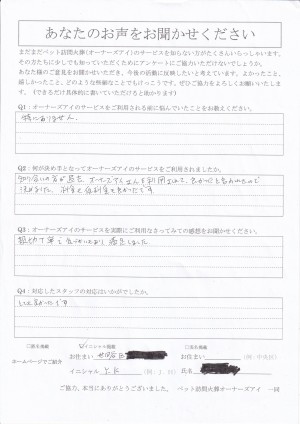 あなたのお声をお聞かせください
まだまだペット訪問火葬(オーナーズアイ)のサービスを知らない方がたくさんいらっしゃいます。
その方たちに少しでも知っていただくためにアンケートにご協力いただけないでしょうか。
あなた様のご意見をお聞かせいただき、今後の活動に反映したいと考えています。よかったこと、
嬉しかったこと、どのような些細なことでも結構です。ぜひご協力をよろしくお願いいたします。
(できるだけ具体的に書いていただけると助かります)
Q1:オーナーズアイのサービスをご利用される前に悩んでいたことをお教えください。
特にありません。
Q2:何が決め手となってオーナーズアイのサービスをご利用されましたか。
知り合いの方が以前
Q3:オーナーズアイのサービスを実際にご利用なさってみての感想をお聞かせください。
親切丁寧で
満足しました。
Q4:対応したスタッフの対応はいかがでしたか。
とても良かったです
□匿名掲載
イニシャル掲載
□実名掲載
ホームページでご紹介
お住まい 世田谷区
お住まい
(例:中央区)
イニシャル Y.K
(例:J.H)
氏名
ご協力、本当にありがとうございました。 ペット訪問火葬オーナーズアイ 一同